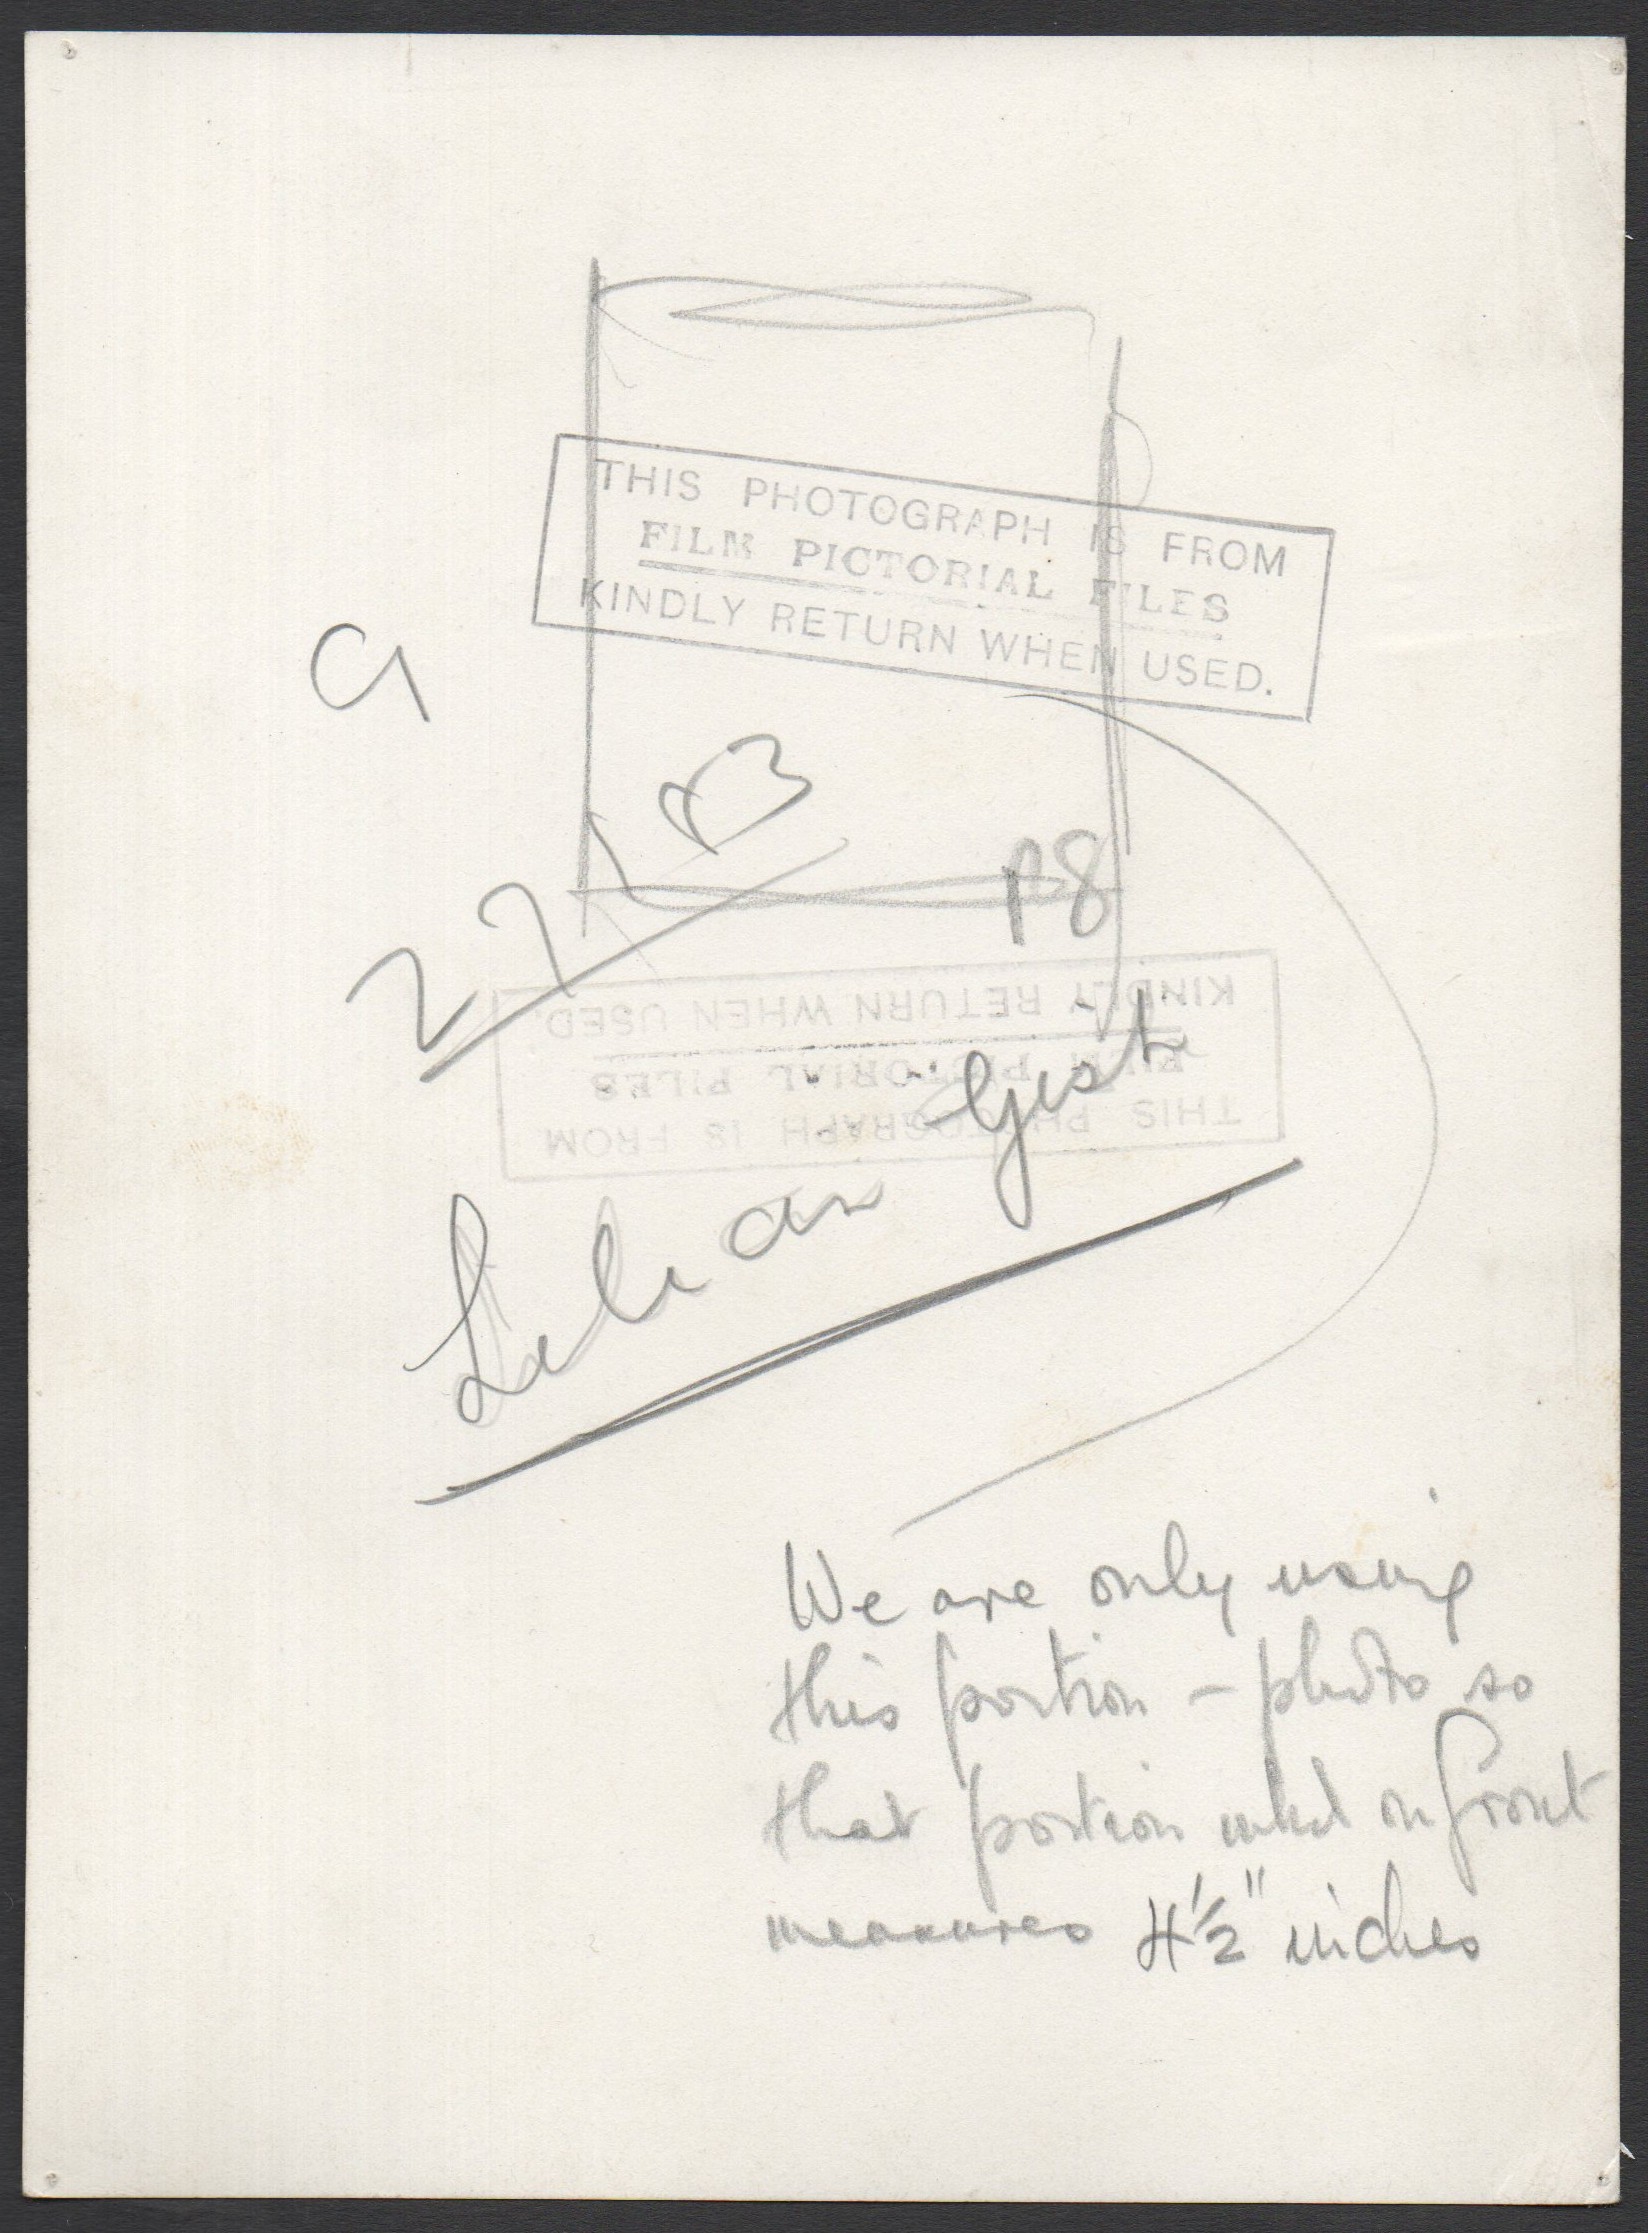 THIS PHOTOGRAPH IS FROM
FILM PICTORIAL FILES
KINDLY RETURN WHEN USED.
P8
THIS PHOTOGRAPH IS FROM
FILM PICTORIAL FILES
KINDLY RETURN WHEN USED.
Lilian Gish
We are only using
this portion – photo so
that portion inked on front
measures 4½" inches